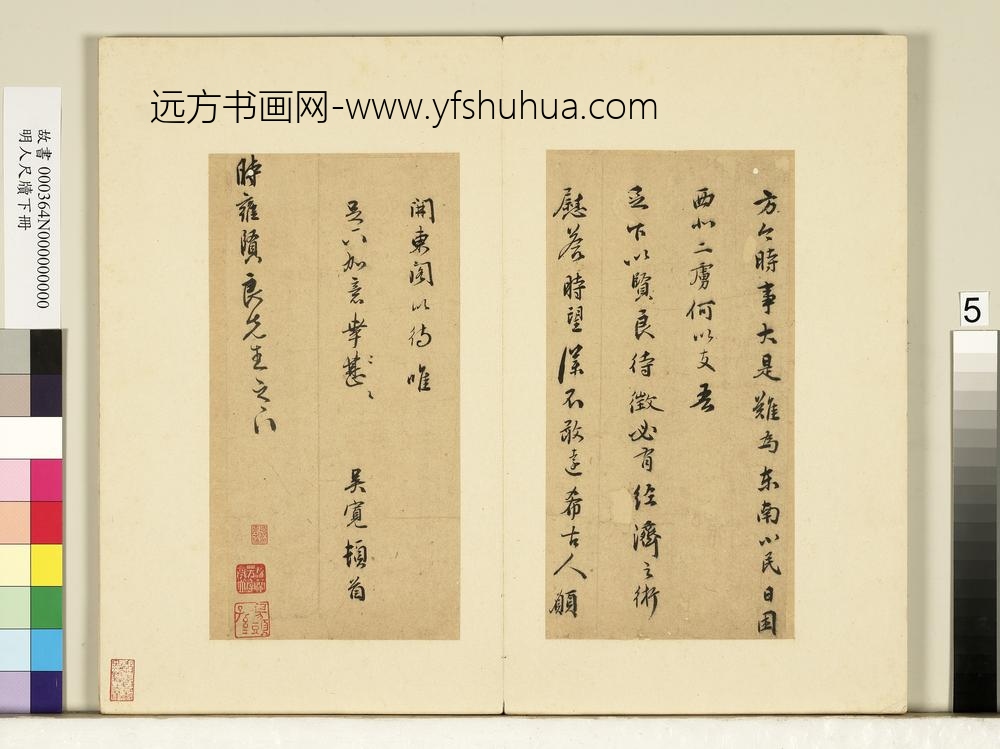 远方书画网-www.yfshuhua.com
故書 000364N000000000
明人尺牘下冊
5
方今時事大是難為东南小民日困
西北二虜何以支吾
足下以賢良待徵必有经濟之術
慰荅時望僕不敢遠希古人願
開東閤以待唯
足下加意幸甚〻
吳寬頓首
時雍賢良先生之下